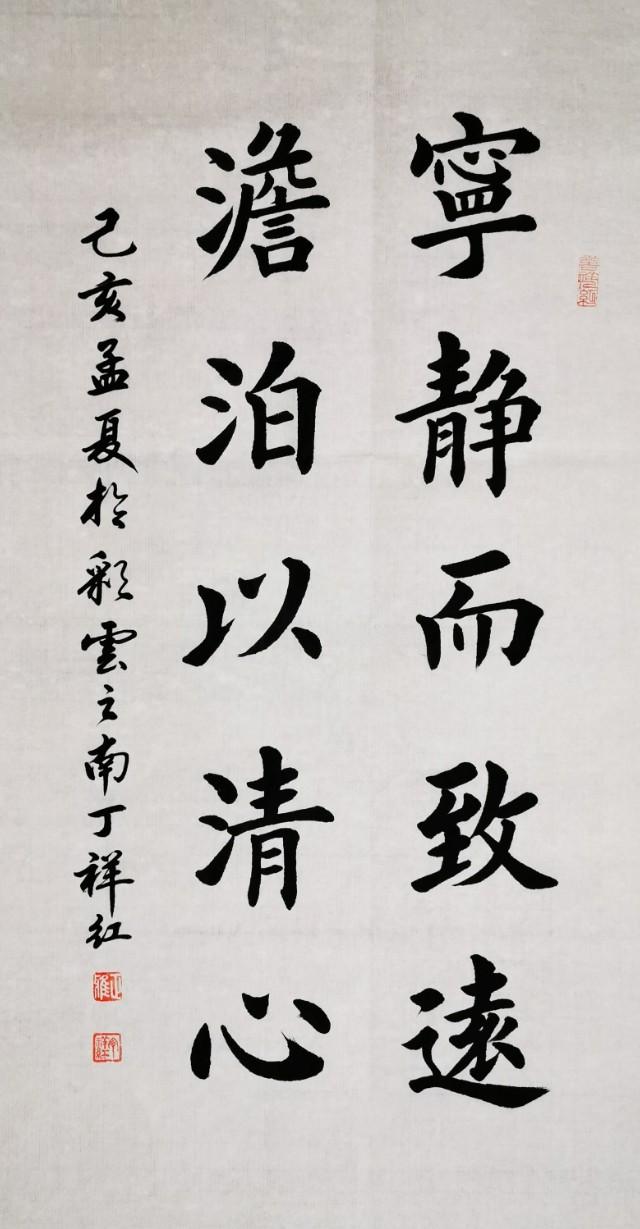 寧静而致遠
澹泊以清心
己亥孟夏於彩雲之南丁祥红